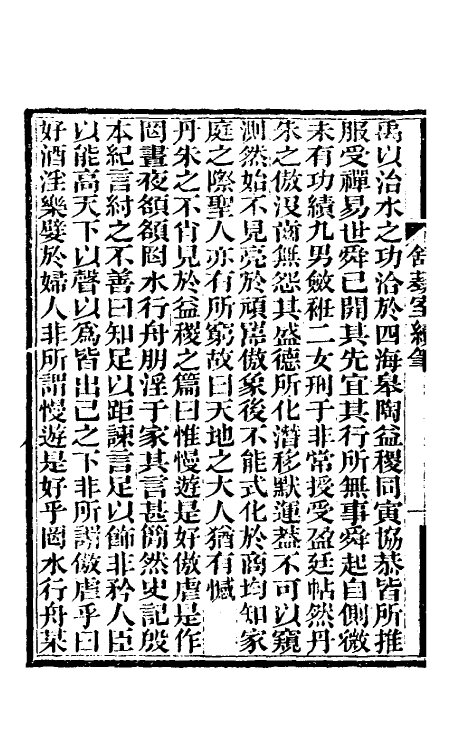 禹以治水之功洽於四海皋陶益稷同寅協恭皆所推
服受禪易世舜已開其先宜其行所無事舜起自側微
未有功績九男斂袵二女刑于非常授受盈廷帖然丹
朱之傲沒齒無怨其盛德所化潛移默運葢不可以窺
測然始不見亮於頑嚚傲象後不能式化於商均知家
庭之際聖人亦有所窮故曰天地之大人猶有憾
丹朱之不肖見於益稷之篇曰惟慢遊是好傲虐是作
罔晝夜頟頟罔水行舟朋淫于家其言甚簡然史記殷
本紀言紂之不善曰知足以距諫言足以飾非矜人臣
以能高天下以聲以爲皆出己之下非所謂傲虐乎曰
好酒淫樂嬖於婦人非所謂慢遊是好乎罔水行舟某
舒蓺室續筆